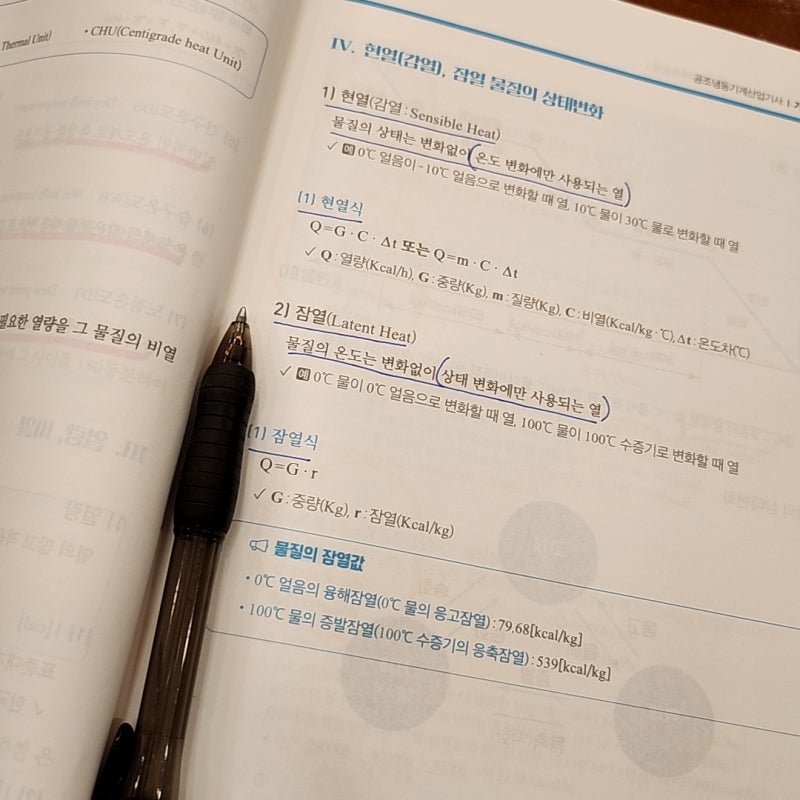 Thermal Unit)
• CHU(Centigrade heat Unit)
필요한 열량을 그 물질의 비열
공조냉동기계산업기사 | 7
IV. 현열(감열), 잠열 물질의 상태변화
1) 현열(감열 : Sensible Heat)
물질의 상태는 변화없이 온도 변화에만 사용되는 열
✓ 예 0℃ 얼음이 -10℃ 얼음으로 변화할 때 열, 10℃ 물이 30℃ 물로 변화할 때 열
(1) 현열식
Q=G · C · Δt 또는 Q=m · C · Δt
✓ Q : 열량(Kcal/h), G : 중량(Kg), m : 질량(Kg), C : 비열(Kcal/kg · ℃), Δt : 온도차(℃)
2) 잠열(Latent Heat)
물질의 온도는 변화없이 상태 변화에만 사용되는 열
✓ 예 0℃ 물이 0℃ 얼음으로 변화할 때 열, 100℃ 물이 100℃ 수증기로 변화할 때 열
(1) 잠열식
Q=G · r
✓ G : 중량(Kg), r : 잠열(Kcal/kg)
물질의 잠열값
• 0℃ 얼음의 융해잠열(0℃ 물의 응고잠열) : 79.68[kcal/kg]
• 100℃ 물의 증발잠열(100℃ 수증기의 응축잠열) : 539[kcal/kg]